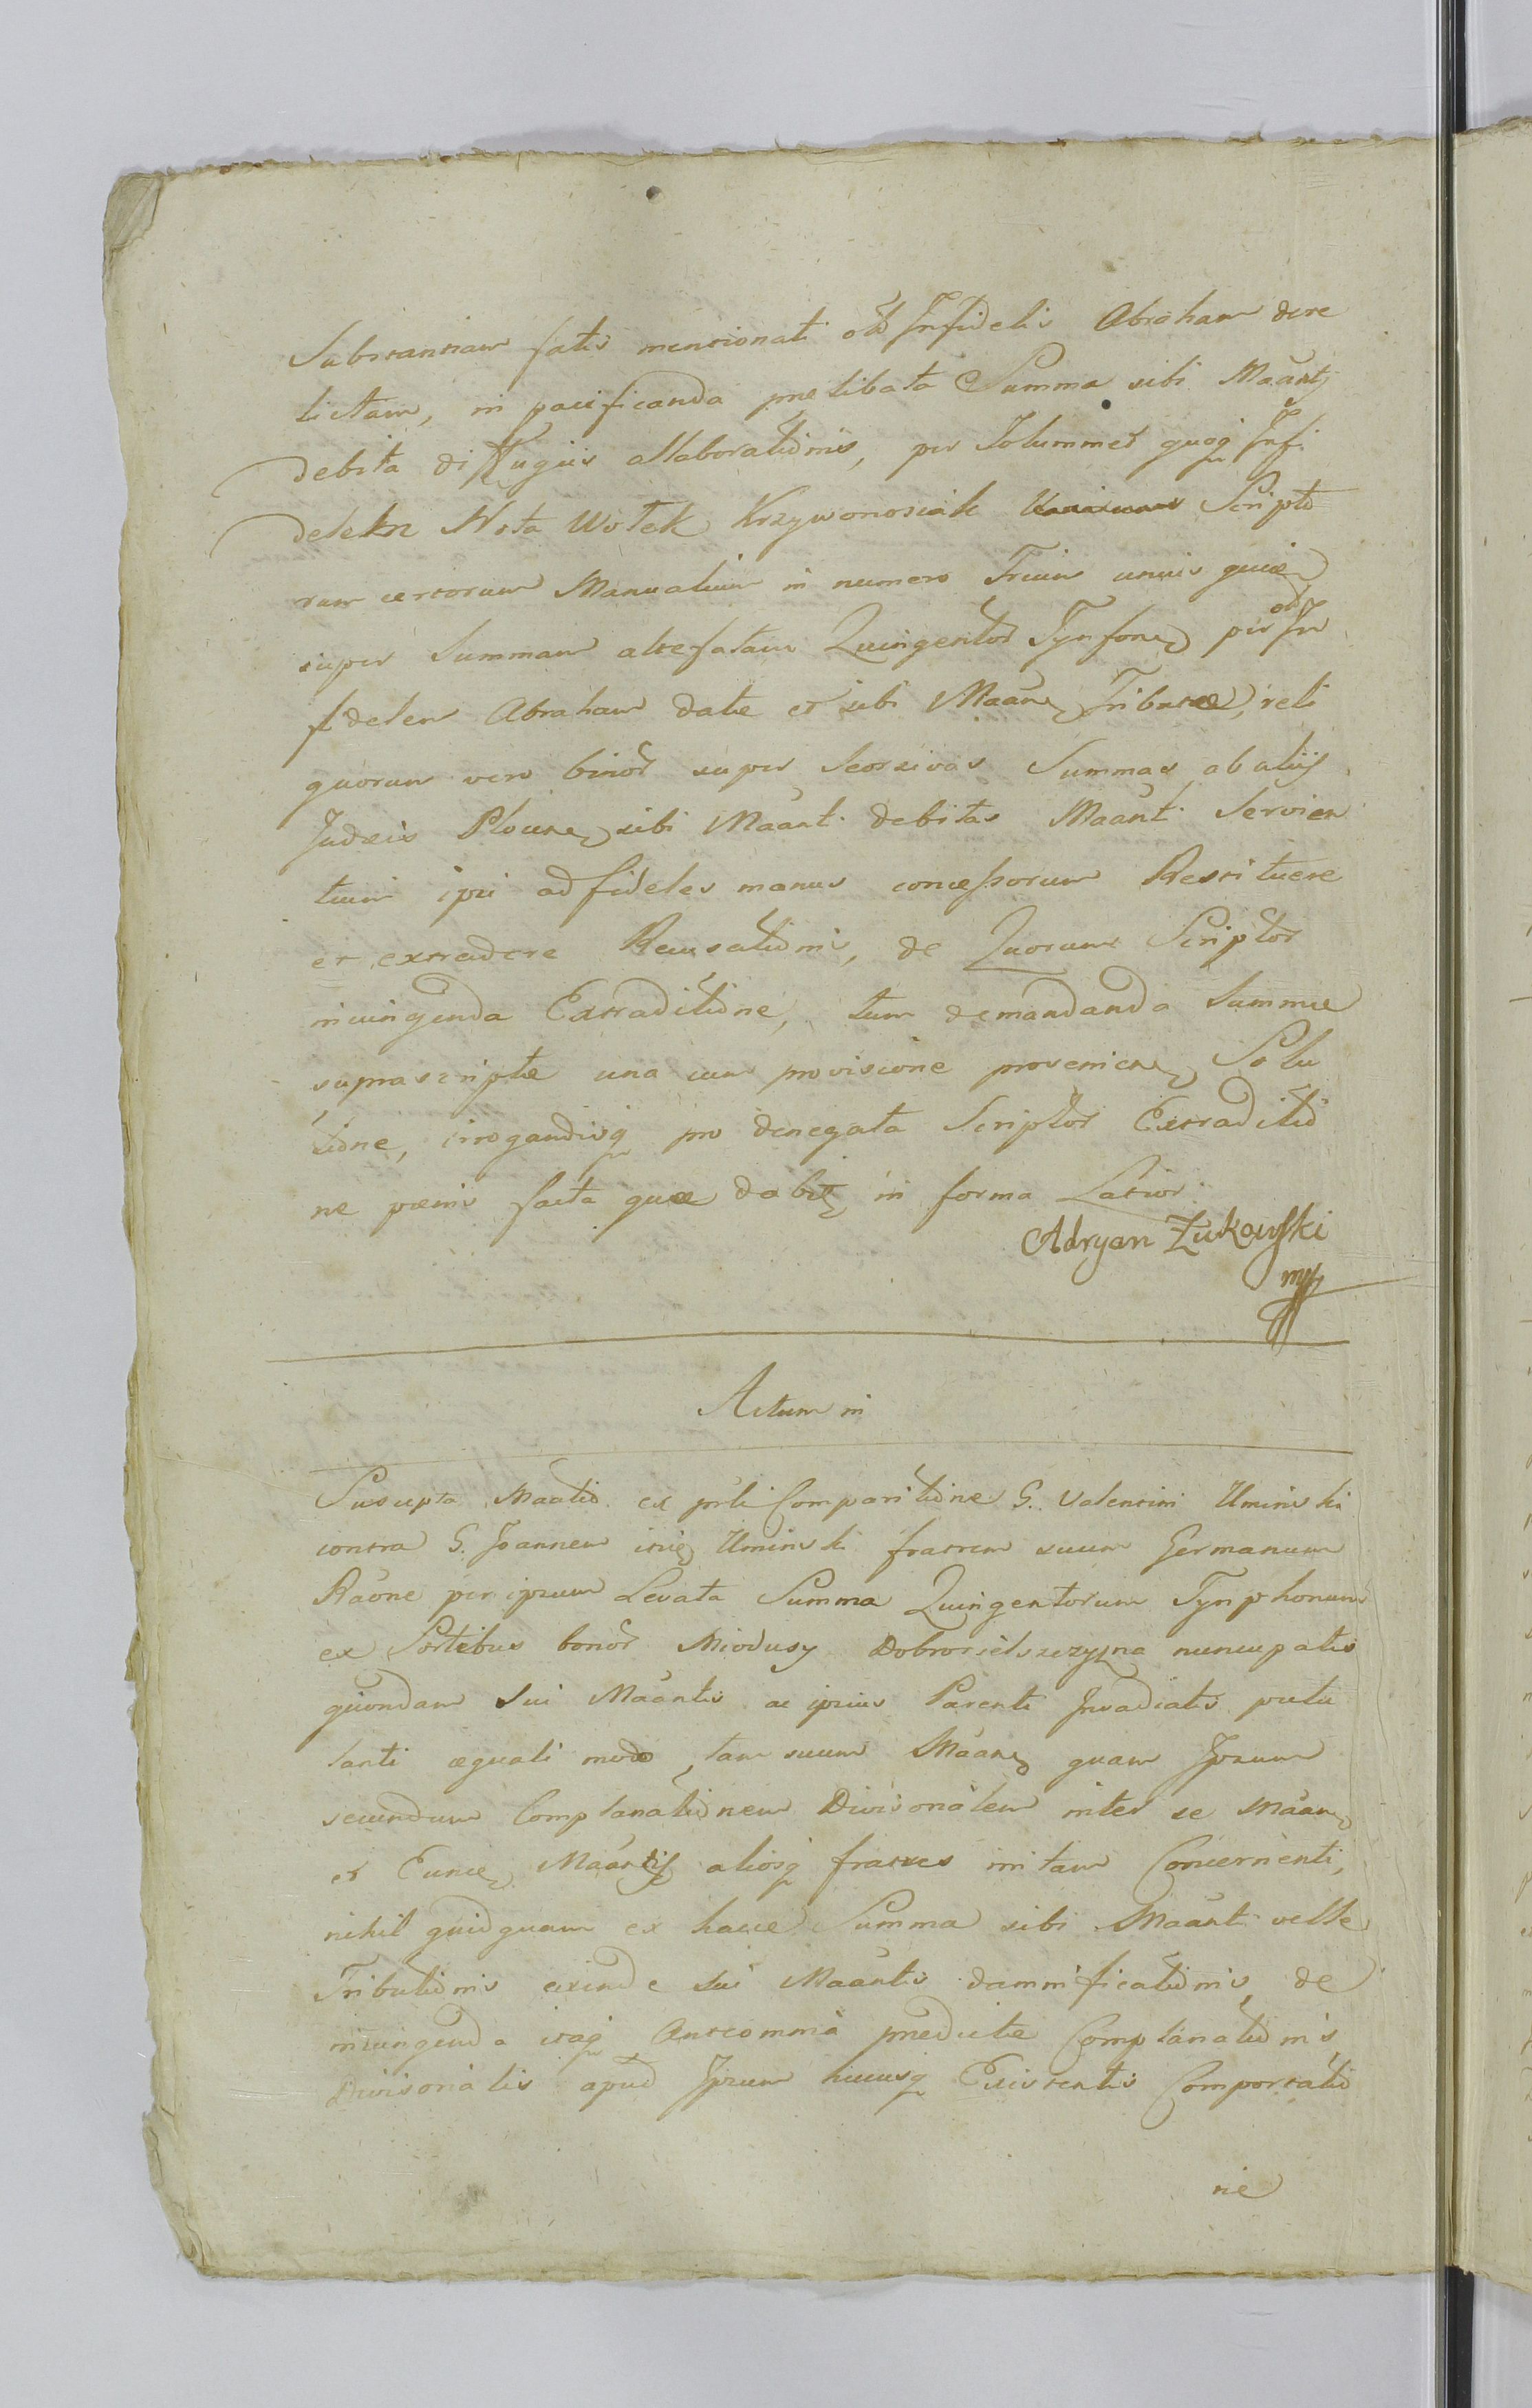 Substantiam fatis mencionati olĩ Infidelis Abraham dere
lictam, in pacificanda prælibata Summa sibi Maãntj
debita diffugiis allaborationis, per Solummet quoq Infi
delem Nota Wołek Krzywonosiak Scripto
rum certorum Manualium in numero Trium unius quidẽ
super Summam altefatam Quingentor Tynfonũ per olĩ In
fidelem Abraham datæ et sibi Maãnti Tributæ, reli
quorum vero binor super Seorsivas Summas ab aliis
Judæis Plocen sibi Maãnt debitas Maãnt Servien
tium ipsi ad fideles manus concessorum Restituere
et extradere Recusationis, de Quorum Scriptor
iniungenda Extraditione, tum demandanda Summæ
suprascriptæ una cum provisione provenien Solu
tione, irrogandisq pro denegata Scriptor Extraditio
ne pænis facta quæ dabit in forma Latior
Adryan Żukowski
mpp
Actum in
Suscepta Maatio ex prli Comparitione G. Valentini Uminski
contra G. Joannem itid Uminski fratrem suum Germanum
Raõne per ipsum Levata Summa Quingentorum Tynphonum
ex Sortibus bonor Miodusy Dobrosielszczyzna nuncupatis
quondam sui Maãntis ac ipsius Parenti Invadiatis putu
lanti æquali modo, tam suum Maãn quam Ipsum
secundum Complanationem Divisonalem inter se Maãn
et Eunde Maãntis aliosq fratres initam Concernenti,
nihil quidquam ex hacce Summa sibi Maãnt velle
Tributionis exinde sui Maãntis damnificationis, de
iniungenda itaq Anteomnia prædictæ Complanationis
Divisonalis apud Ipsum hucusq Existentis Comportatio
ne